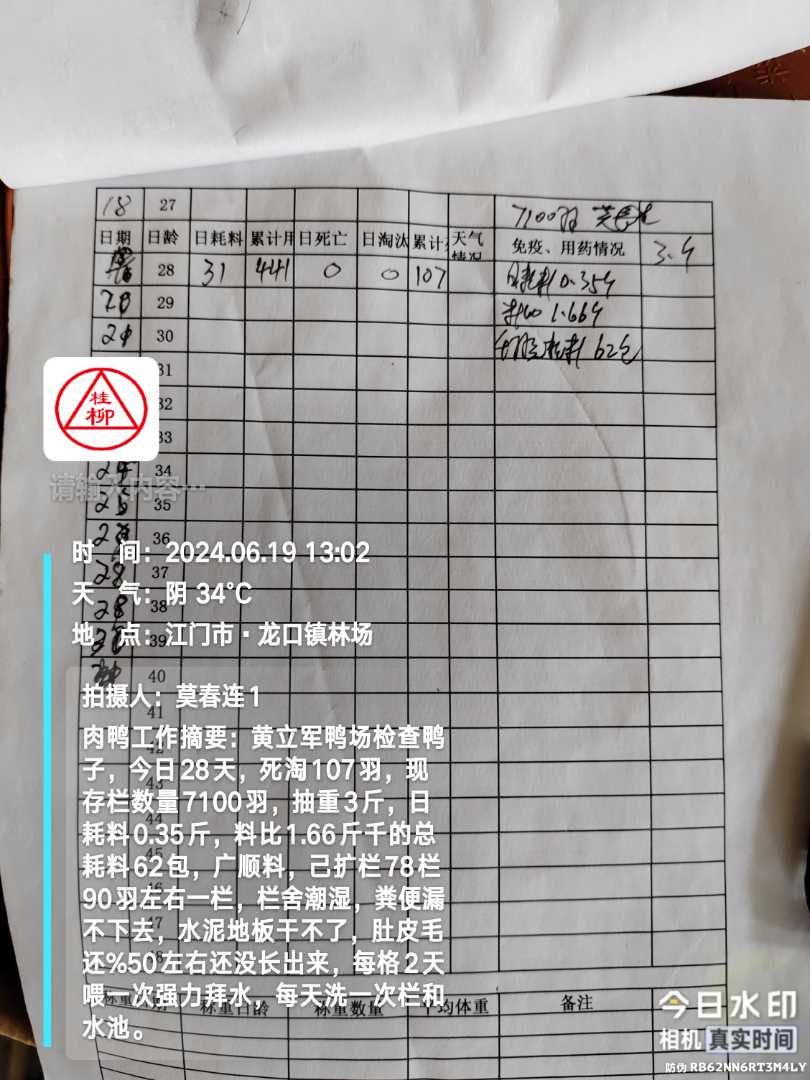 18 27 7100羽
日期 日龄 日耗料 累计用 日死亡 日淘汰 累计 天气情况 免疫、用药情况 3.斤
28 31 441 0 0 107 日耗料0.35斤
20 29 1.66斤
21 30 耗料62包
31
32
桂柳
33
24 34
请输入内容…
25 35
36
时 间：2024.06.19 13:02
28 37
天 气：阴 34℃
28 38
地 点：江门市·龙口镇林场
39
40
拍摄人：莫春连1
41
肉鸭工作摘要：黄立军鸭场检查鸭
子，今日28天，死淘107羽，现
43
存栏数量7100羽，抽重3斤，日
44
耗料0.35斤，料比1.66斤千的总
耗料62包，广顺料，己扩栏78栏
90羽左右一栏，栏舍潮湿，粪便漏
不下去，水泥地板干不了，肚皮毛
还%50左右还没长出来，每格2天
喂一次强力拜水，每天洗一次栏和
水池。
称重日龄 称重数量 平均体重 备注
今日水印
相机 真实时间
防伪 RB62NN6RT3M4LY